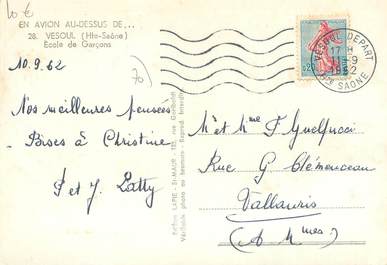 10 €
EN AVION AU-DESSUS DE...
28. VESOUL (Hte-Saône)
Ecole de Garçons
10.9.62
70
Nos meilleures pensées
Bises à Christine
F et J.
Editions LAPIE - St-MAUR - 125, rue Garibaldi
Véritable photo au bromure - Reprod. Interdite
VESOUL DEPART
17 H
11-9
1962
HTE SAONE
0,20
Mr et Mme F
Rue G Clémenceau
Vallauris
(A Mmes)